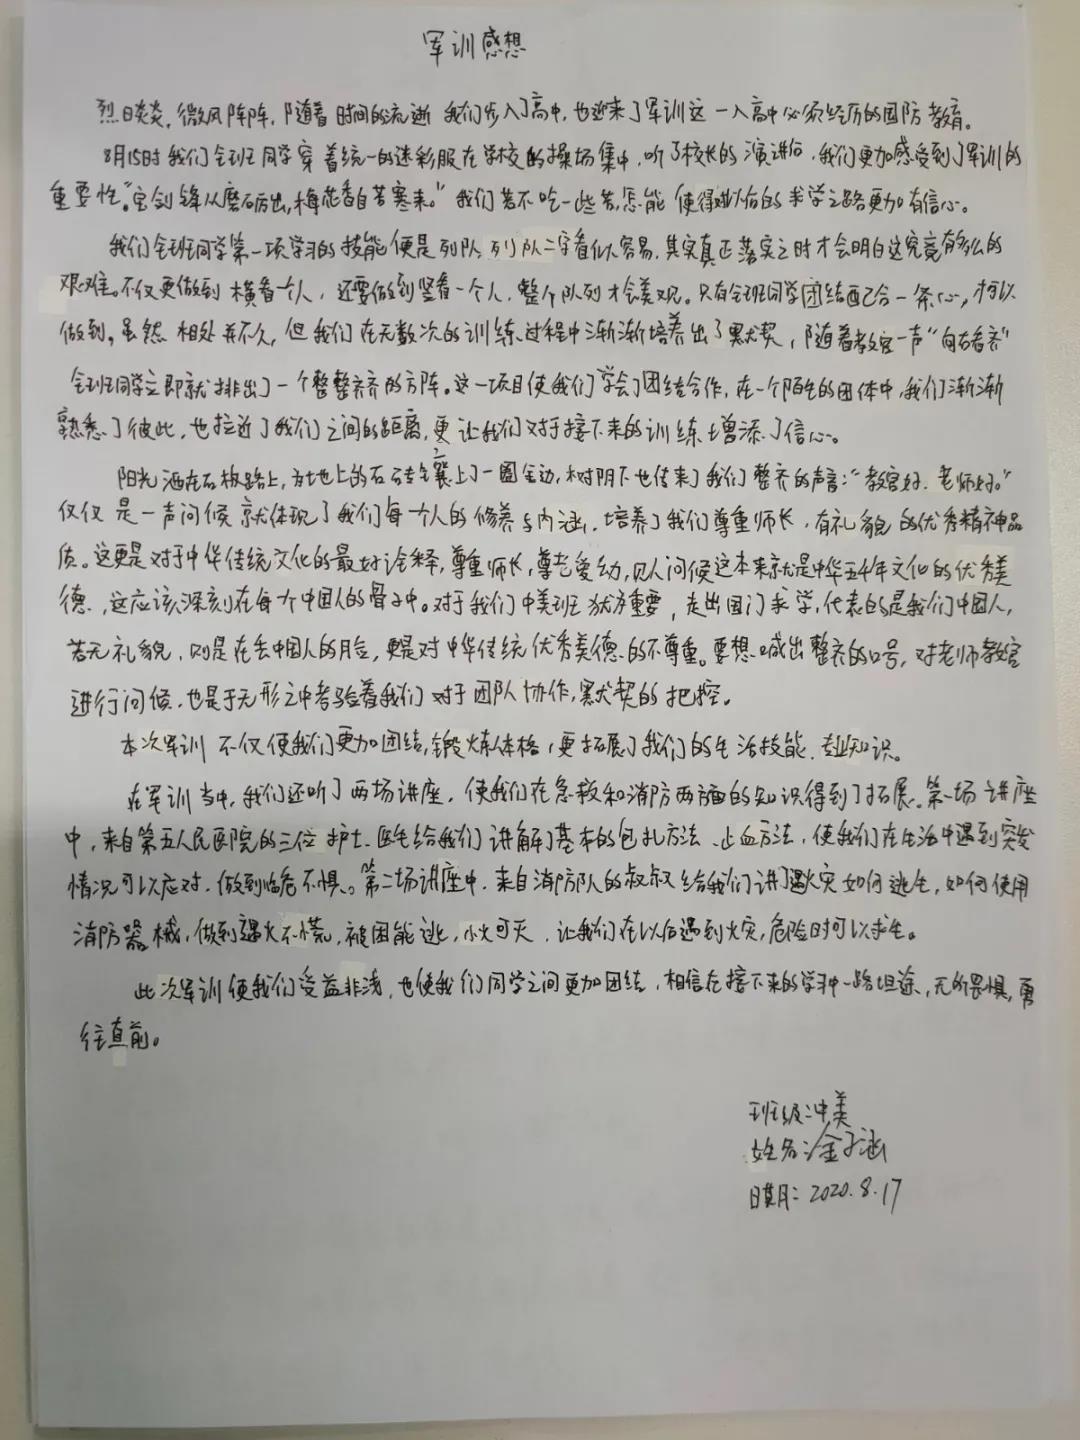 军训感想
烈日炎炎，微风阵阵，随着时间的流逝 我们步入了高中，也迎来了军训这一入高中必须经历的国防教育。
8月15时我们全班同学穿着统一的迷彩服在学校的操场集中，听了校长的演讲后，我们更加感受到了军训的
重要性。"宝剑锋从磨砺出，梅花香自苦寒来。"我们若不吃一些苦，怎能使得以后的求学之路更加有信心。
我们全班同学第一项学习的技能便是列队，列队二字看似容易，其实真正落实之时才会明白这究竟有多么的
艰难。不仅要做到横看一个人，还要做到竖看一个人，整个队列才会美观。只有全班同学团结配合一条心，才可以
做到。虽然相处并不久，但我们在无数次的训练过程中渐渐培养出了默契，随着教官一声"向右看齐"
全班同学立即就排出了一个整整齐齐的方阵。这一项目使我们学会了团结合作，在一个陌生的团体中，我们渐渐
熟悉了彼此，也拉近了我们之间的距离，更让我们对于接下来的训练增添了信心。
阳光洒在石板路上，为地上的石砖镶上了一圈金边，树阴下也传来了我们整齐的声音："教官好，老师好。"
仅仅是一声问候就体现了我们每个人的修养与内涵，培养了我们尊重师长，有礼貌的优秀精神品
质。这更是对于中华传统文化的最好诠释，尊重师长，尊老爱幼，见人问候这本来就是中华五千年文化的优秀美
德，这应该深刻在每个中国人的骨子中。对于我们中美班尤为重要，走出国门求学，代表的是我们中国人，
若无礼貌，则是在丢中国人的脸，更是对中华传统优秀美德的不尊重。要想喊出整齐的口号，对老师教官
进行问候，也是于无形之中考验着我们对于团队协作，默契的把控。
本次军训不仅使我们更加团结，锻炼体格，更拓展了我们的生活技能、专业知识。
在军训当中，我们还听了两场讲座，使我们在急救和消防两方面的知识得到了拓展。第一场讲座
中，来自第五人民医院的三位护士、医生给我们讲解了基本的包扎方法、止血方法，使我们在生活中遇到突发
情况可以应对，做到临危不惧。第二场讲座中，来自消防队的叔叔给我们讲了遇火灾如何逃生，如何使用
消防器械，做到遇火不慌，被困能逃，小火可灭，让我们在以后遇到火灾，危险时可以求生。
此次军训使我们受益非浅，也使我们同学之间更加团结，相信在接下来的学习中一路坦途，无所畏惧，勇
往直前。
班级：中美
姓名：金子涵
日期：2020.8.17